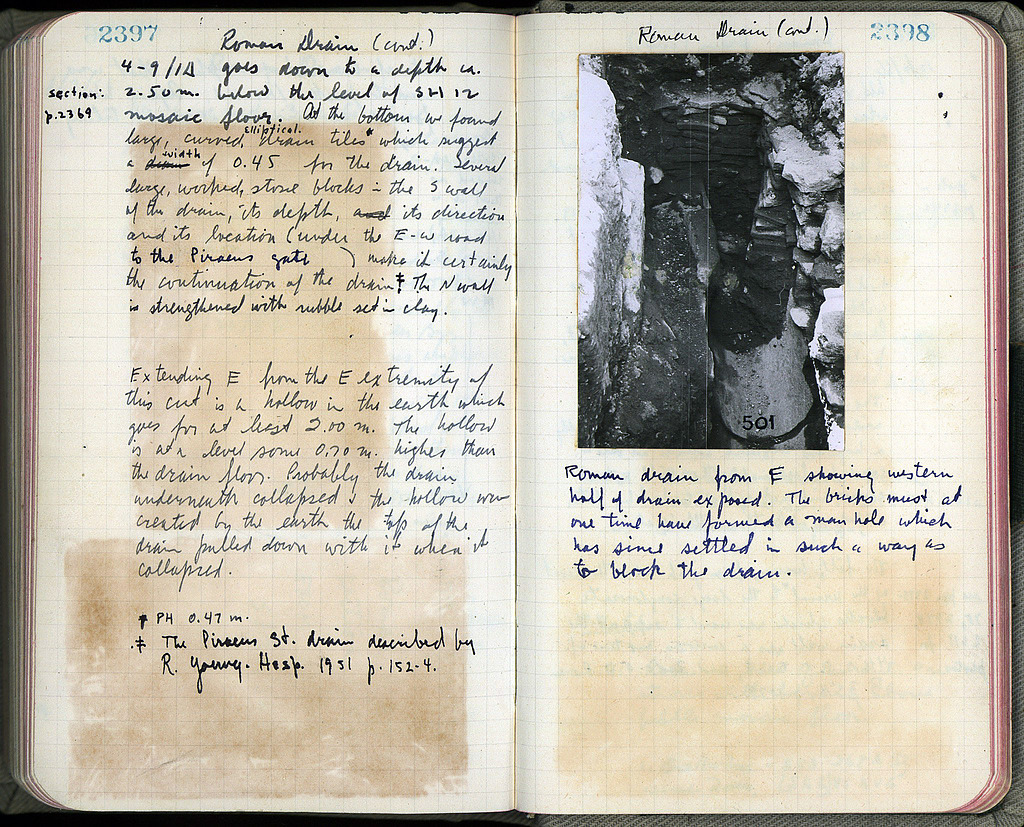 2397
Roman Drain (cont.)
4-9/ΙΔ goes down to a depth ca.
section: 2.50 m. below the level of SH 12
p. 2369 mosaic floor. At the bottom we found
elliptical
large, curved, drain tiles* which suggest
width
a of 0.45 for the drain. Several
large, worked, stone blocks in the S wall
of the drain, its depth, and its direction
and its location (under the E-W road
to the Piraeus gate ) make it certainly
the continuation of the drain‡ The N wall
is strengthened with rubble set in clay.
Extending E from the E extremity of
this cut is a hollow in the earth which
goes for at least 2.00 m. The hollow
is at a level some 0.70 m. higher than
the drain floor. Probably the drain
underneath collapsed & the hollow was
created by the earth the tops of the
drain pulled down with it when it
collapsed.
* PH 0.47 m.
‡ The Piraeus St. drain described by
R. Young. Hesp. 1951 p. 152-4.
Roman Drain (cont.)
2398
501
Roman drain from E showing western
half of drain exposed. The bricks must at
one time have formed a man hole which
has since settled in such a way as
to block the drain.